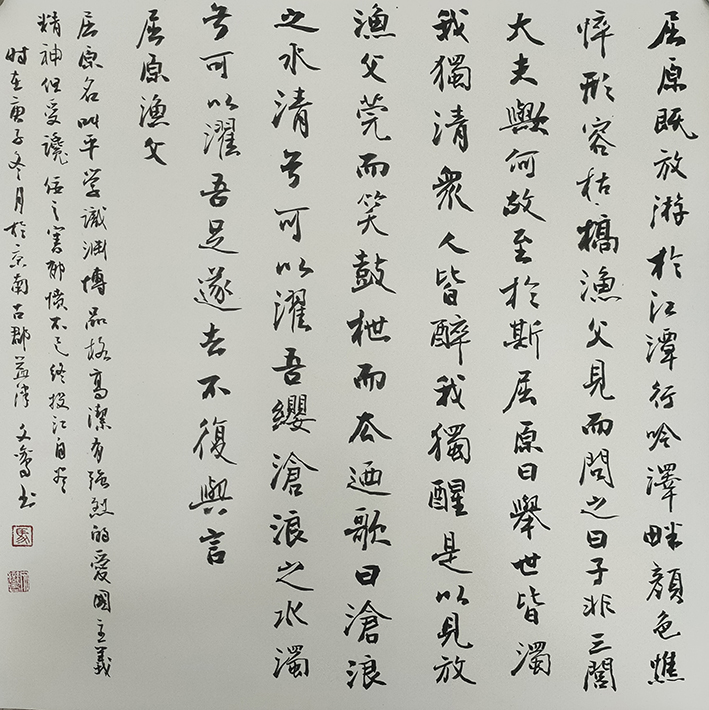 屈原既放游於江潭行吟澤畔顏色憔
悴形容枯槁漁父見而問之曰子非三閭
大夫歟何故至於斯屈原曰舉世皆濁
我獨清衆人皆醉我獨醒是以見放
漁父莞而笑鼓枻而去迺歌曰滄浪
之水清兮可以濯吾纓滄浪之水濁
兮可以濯吾足遂去不復與言
屈原漁父
屈原名叫平学識渊博品格高潔有強烈的愛國主義
精神但受讒佞之害郁憤不已終投江自尽
时在庚子冬月於京南古郡益津文书